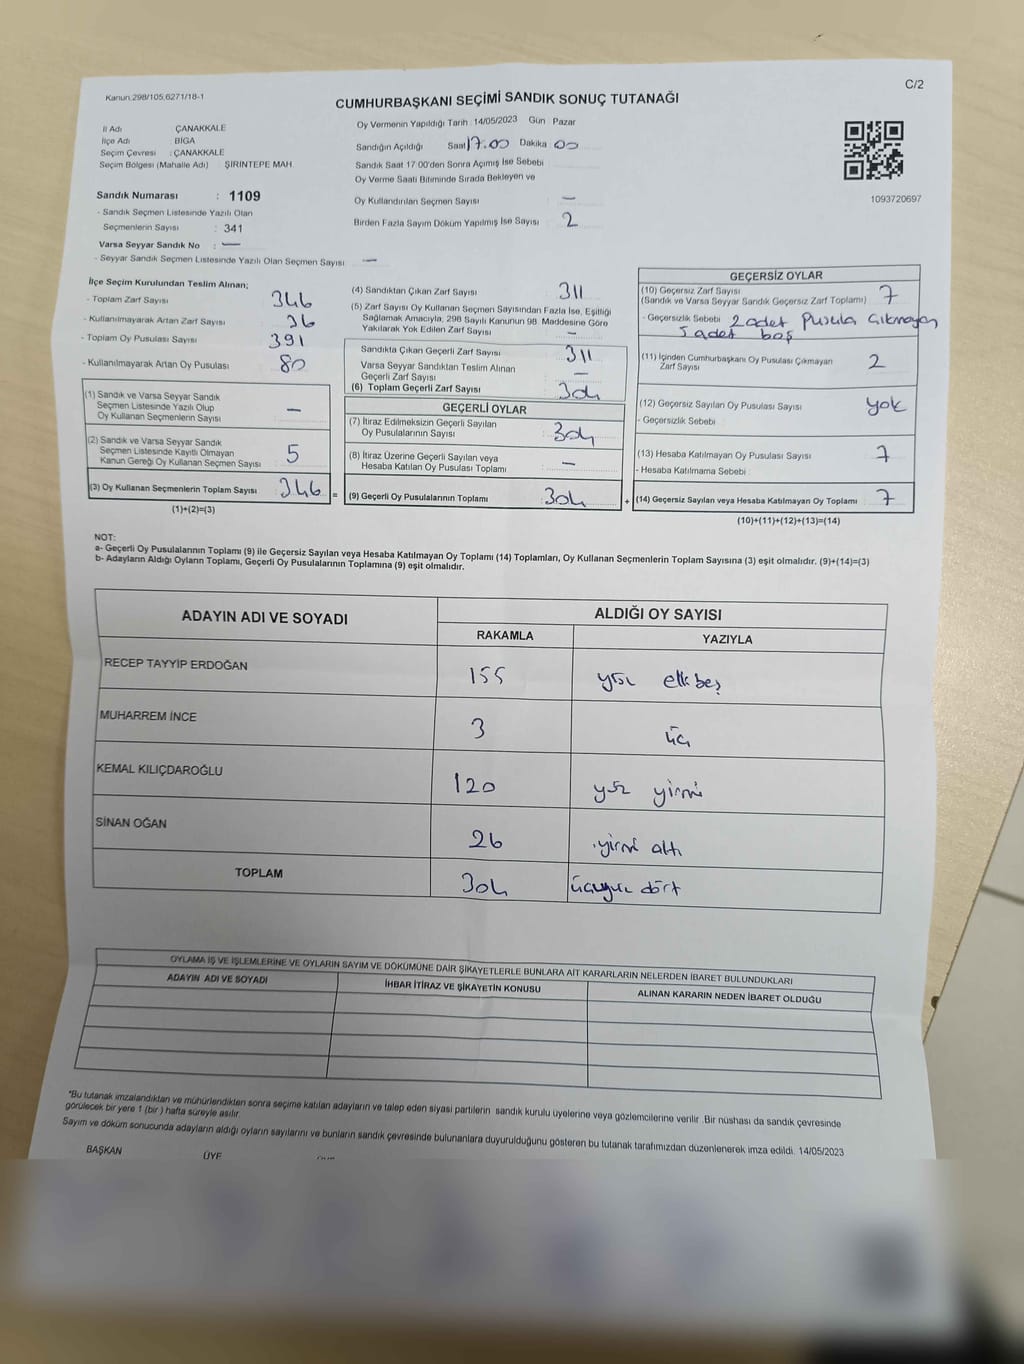 Kanun.298/105,6271/18-1
C/2
CUMHURBAŞKANI SEÇİMİ SANDIK SONUÇ TUTANAĞI
İl Adı ÇANAKKALE
İlçe Adı BİGA
Seçim Çevresi : ÇANAKKALE
Seçim Bölgesi (Mahalle Adı) : ŞİRİNTEPE MAH.
Sandık Numarası : 1109
- Sandık Seçmen Listesinde Yazılı Olan
Seçmenlerin Sayısı : 341
Varsa Seyyar Sandık No : —
- Seyyar Sandık Seçmen Listesinde Yazılı Olan Seçmen Sayısı —
Oy Vermenin Yapıldığı Tarih : 14/05/2023 Gün : Pazar
Sandığın Açıldığı Saat 17.00 Dakika 00
Sandık Saat 17:00'den Sonra Açımış İse Sebebi
Oy Verme Saati Bitiminde Sırada Bekleyen ve
Oy Kullandırılan Seçmen Sayısı —
Birden Fazla Sayım Döküm Yapılmış İse Sayısı 2
1093720697
İlçe Seçim Kurulundan Teslim Alınan;
- Toplam Zarf Sayısı 346
- Kullanılmayarak Artan Zarf Sayısı 36
- Toplam Oy Pusulası Sayısı 391
- Kullanılmayarak Artan Oy Pusulası 80
(1) Sandık ve Varsa Seyyar Sandık
Seçmen Listesinde Yazılı Olup
Oy Kullanan Seçmenlerin Sayısı —
(2) Sandık ve Varsa Seyyar Sandık
Seçmen Listesinde Kayıtlı Olmayan
Kanun Gereği Oy Kullanan Seçmen Sayısı 5
(3) Oy Kullanan Seçmenlerin Toplam Sayısı 346 =
(1)+(2)=(3)
(4) Sandıktan Çıkan Zarf Sayısı 311
(5) Zarf Sayısı Oy Kullanan Seçmen Sayısından Fazla İse, Eşitliği
Sağlamak Amacıyla, 298 Sayılı Kanunun 98. Maddesine Göre
Yakılarak Yok Edilen Zarf Sayısı —
Sandıkta Çıkan Geçerli Zarf Sayısı 311
Varsa Seyyar Sandıktan Teslim Alınan
Geçerli Zarf Sayısı —
(6) Toplam Geçerli Zarf Sayısı 304
GEÇERLİ OYLAR
(7) İtiraz Edilmeksizin Geçerli Sayılan
Oy Pusulalarının Sayısı 304
(8) İtiraz Üzerine Geçerli Sayılan veya
Hesaba Katılan Oy Pusulası Toplamı —
(9) Geçerli Oy Pusulalarının Toplamı 304 +
GEÇERSİZ OYLAR
(10) Geçersiz Zarf Sayısı
(Sandık ve Varsa Seyyar Sandık Geçersiz Zarf Toplamı) 7
- Geçersizlik Sebebi 2 adet Pusula Çıkmayan
5 adet boş
(11) İçinden Cumhurbaşkanı Oy Pusulası Çıkmayan
Zarf Sayısı 2
(12) Geçersiz Sayılan Oy Pusulası Sayısı yok
- Geçersizlik Sebebi
(13) Hesaba Katılmayan Oy Pusulası Sayısı 7
- Hesaba Katılmama Sebebi
(14) Geçersiz Sayılan veya Hesaba Katılmayan Oy Toplamı 7
(10)+(11)+(12)+(13)=(14)
NOT:
a- Geçerli Oy Pusulalarının Toplamı (9) ile Geçersiz Sayılan veya Hesaba Katılmayan Oy Toplamı (14) Toplamları, Oy Kullanan Seçmenlerin Toplam Sayısına (3) eşit olmalıdır. (9)+(14)=(3)
b- Adayların Aldığı Oyların Toplamı, Geçerli Oy Pusulalarının Toplamına (9) eşit olmalıdır.
ADAYIN ADI VE SOYADI ALDIĞI OY SAYISI
RAKAMLA YAZIYLA
RECEP TAYYİP ERDOĞAN 155 yüz elli beş
MUHARREM İNCE 3 üç
KEMAL KILIÇDAROĞLU 120 yüz yirmi
SİNAN OĞAN 26 yirmi altı
TOPLAM 304 üçyüz dört
OYLAMA İŞ VE İŞLEMLERİNE VE OYLARIN SAYIM VE DÖKÜMÜNE DAİR ŞİKAYETLERLE BUNLARA AİT KARARLARIN NELERDEN İBARET BULUNDUKLARI
ADAYIN ADI VE SOYADI İHBAR İTİRAZ VE ŞİKAYETİN KONUSU ALINAN KARARIN NEDEN İBARET OLDUĞU
*Bu tutanak imzalandıktan ve mühürlendikten sonra seçime katılan adayların ve talep eden siyasi partilerin sandık kurulu üyelerine veya gözlemcilerine verilir. Bir nüshası da sandık çevresinde
görülecek bir yere 1 (bir) hafta süreyle asılır.
Sayım ve döküm sonucunda adayların aldığı oyların sayılarını ve bunların sandık çevresinde bulunanlara duyurulduğunu gösteren bu tutanak tarafımızdan düzenlenerek imza edildi. 14/05/2023
BAŞKAN ÜYE